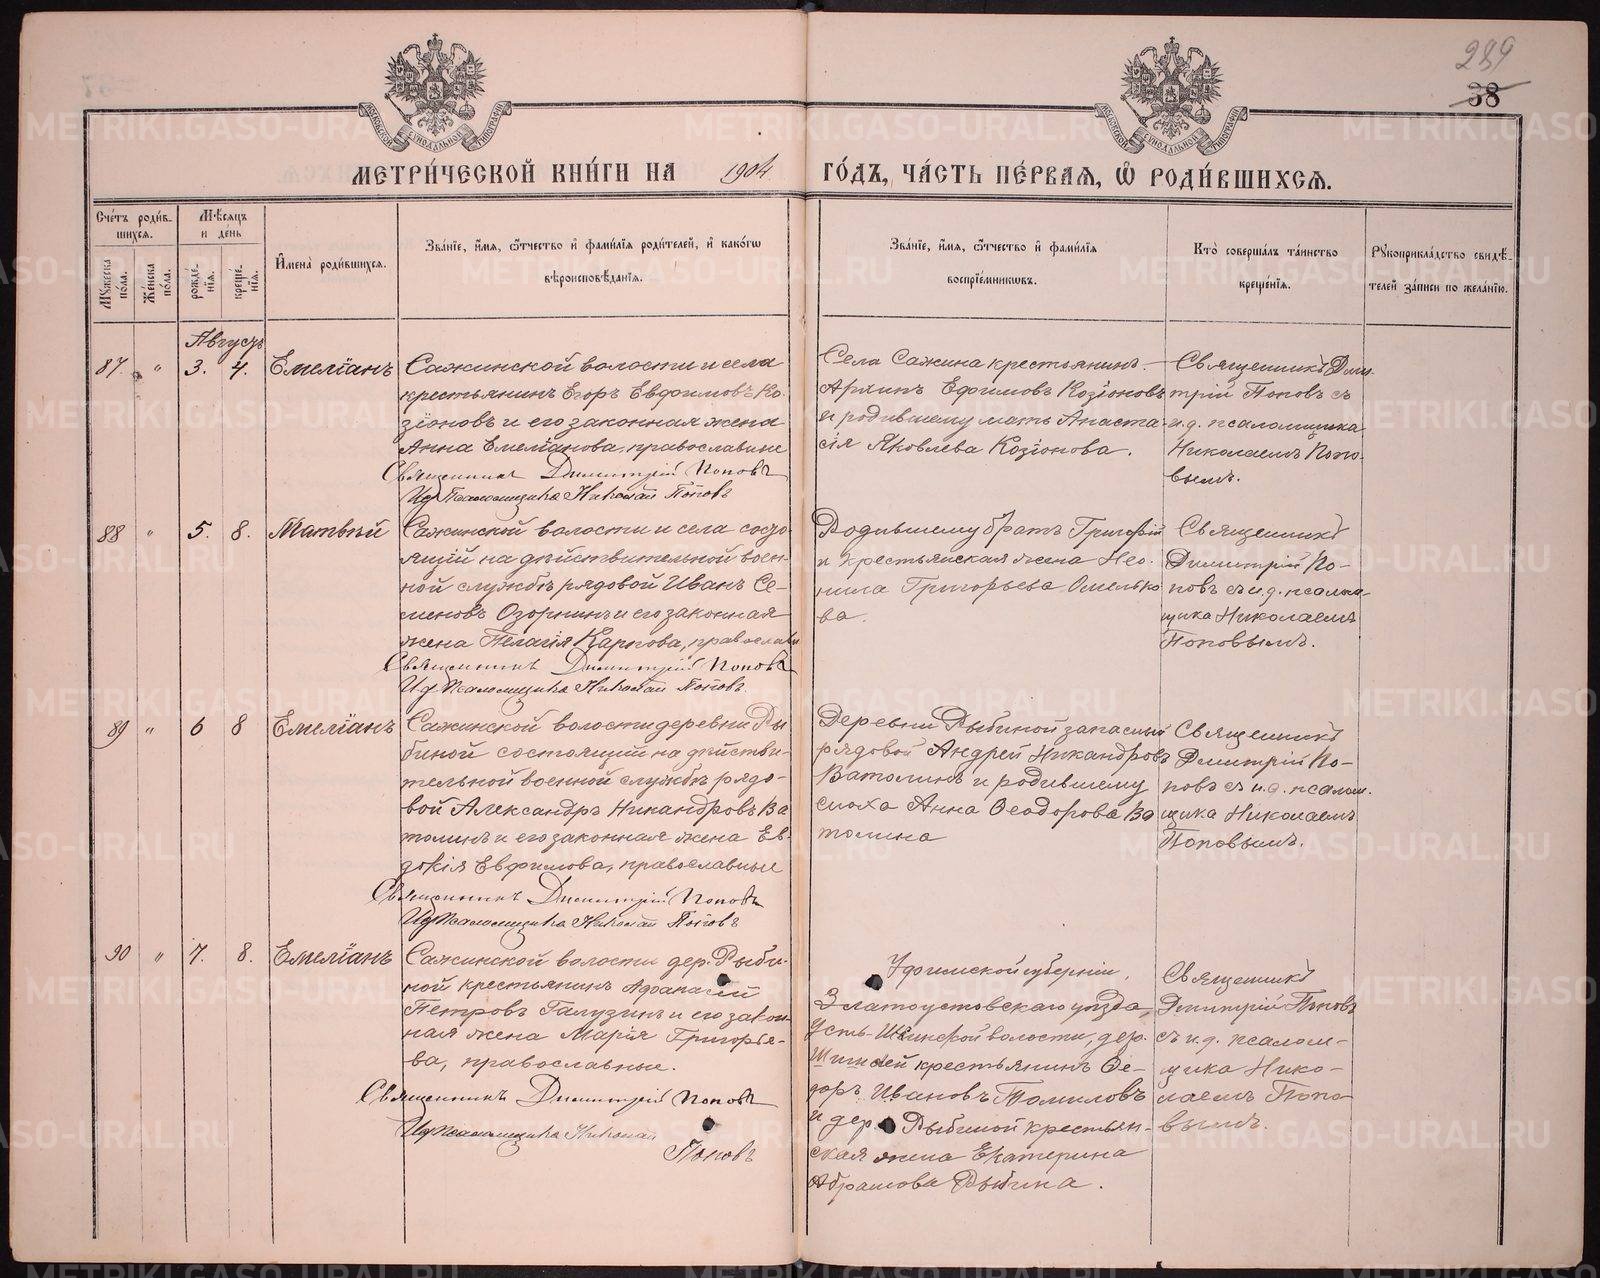 289
38
МЕТРИ́ЧЕСКОЙ КНИ́ГИ НА 1904 ГО́ДЪ, ЧА́СТЬ ПЕ́РВАЯ, Ѡ РОДИ́ВШИХСЯ.
Сче́тъ роди́в-
шихся.
Мѣсяцъ
и день
Мужеска
пола.
Же́нска
по́ла.
рожде-
нія.
креще-
нія.
Имена̀ роди́вшихся.
Зва́ніе, и́мя, ѻ́тчество и҆ фами́лія роди́телей, и҆ како́гѡ
вѣроисповѣ́данія.
Зва́ніе, и́мя, ѻ́тчество и҆ фами́лія
воспріе́мниковъ.
Кто̀ соверша́лъ та́инство
креще́нія.
Рукоприкла́дство свидѣ́-
телей за́писи по жела́нію.
Августъ
87. " 3. 4. Емеліанъ
Сажинской волости и села
крестьянинъ Егоръ Евфимовъ Ко-
зіоновъ и его законная жена
Анна Емеліанова, православные
Священникъ Димитрій Поповъ
И.д. Псаломщика Николай Поповъ
Села Сажина крестьянинъ
Архипъ Ефимовъ Козіоновъ
и родившему мать Анаста-
сія Яковлева Козіонова.
Священникъ Дми-
трій Поповъ съ
и.д. псаломщика
Николаемъ Попо-
вымъ.
88 " 5. 8. Матвѣй
Сажинской волости и села состо-
ящій на дѣйствительной воен-
ной службѣ рядовой Иванъ Се-
меновъ Озорнинъ и его законная
жена Пелагія Карпова, православн
Священникъ Димитрій Поповъ
И.д. Псаломщика Николай Поповъ.
Родившему братъ Григорій
и крестьянская жена Нео-
нила Григорьева Омелько
ва.
Священникъ
Димитрій По-
повъ съ и.д. псалом-
щика Николаемъ
Поповымъ.
89 " 6 8 Емеліанъ
Сажинской волости деревни Ры-
биной состоящій на дѣйстви-
тельной военной службѣ рядо-
вой Александръ Никандровъ Ва
толинъ и его законная жена Ев-
докія Евфимова, православные
Священникъ Димитрій Поповъ
И.д. Псаломщика Николай Поповъ
Деревни Рыбиной запасный
рядовой Андрей Никандровъ
Ватолинъ и родившему
сноха Анна Ѳеодорова Ва
толина
Священникъ
Димитрій По-
повъ съ и.д. псалом-
щика Николаемъ
Поповымъ.
90 " 7. 8. Емеліанъ
Сажинской волости дер. Рыби-
ной крестьянинъ Афанасій
Петровъ Галузинъ и его закон-
ная жена Марія Григорье-
ва, православные.
Священникъ Димитрій Поповъ
И.д. Псаломщика Николай
Поповъ
Уфимской губерніи,
Златоустовскаго уѣзда,
Усть- волости, дер.
крестьянинъ Ѳе-
доръ Ивановъ Томиловъ
и дер. Рыбиной крестьян-
ская жена Екатерина
Абрамова Рыбина.
Священникъ
Димитрій Поповъ
съ и.д. псалом-
щика Нико-
лаемъ Попо-
вымъ.
METRIKI.GASO-URAL.RU